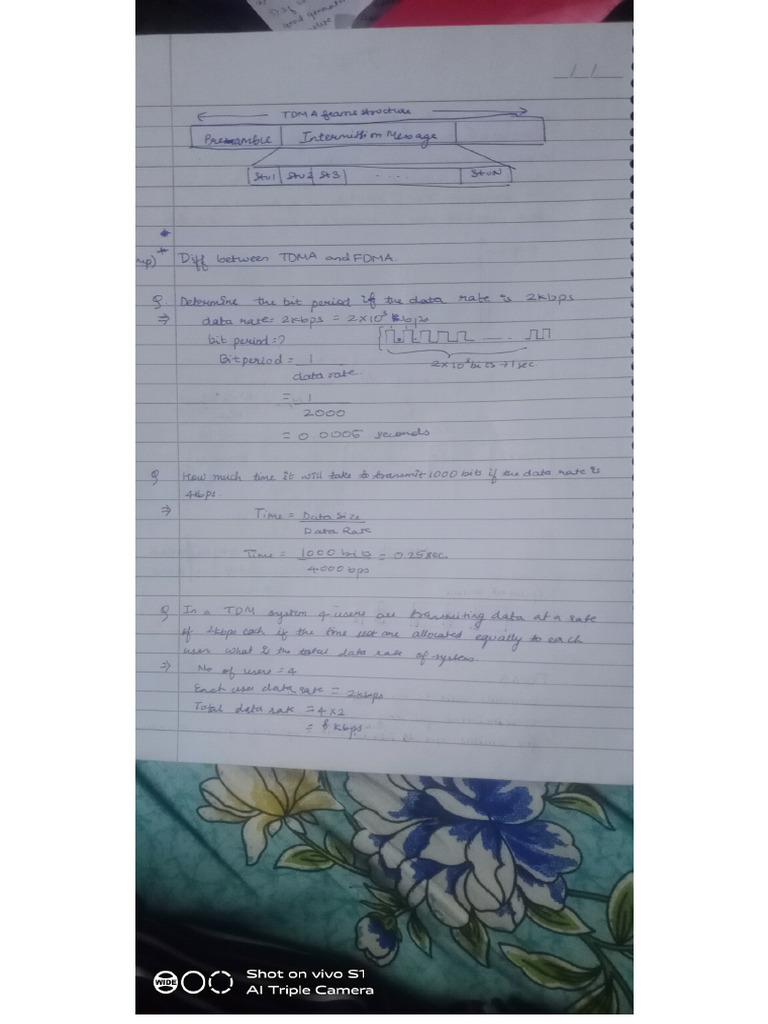 good
/ /
TDMA frame structure
Preamble Intermission Message
Stu1 Stu2 St3 .... StuN
*
imp) * Diff between TDMA and FDMA.
Q. Determine the bit period if the data rate is 2kbps
⇒ data rate = 2kbps = 2×10³ kbps
bit period = ?
Bit period = 1
data rate
2×10³ bits → 1 sec
= 1
2000
= 0.0005 seconds
Q How much time it will take to transmit 1000 bits if the data rate is
4kbps.
⇒ Time = Data Size
Data Rate
Time = 1000 bits = 0.25 sec.
4000 bps
Q In a TDM system 4 users are transmitting data at a rate
of 2kbps each if the time slot are allocated equally to each
user what is the total data rate of system.
⇒ No of users = 4
Each user data rate = 2kbps
Total data rate = 4 × 2
= 8 kbps
WIDE
Shot on vivo S1
AI Triple Camera